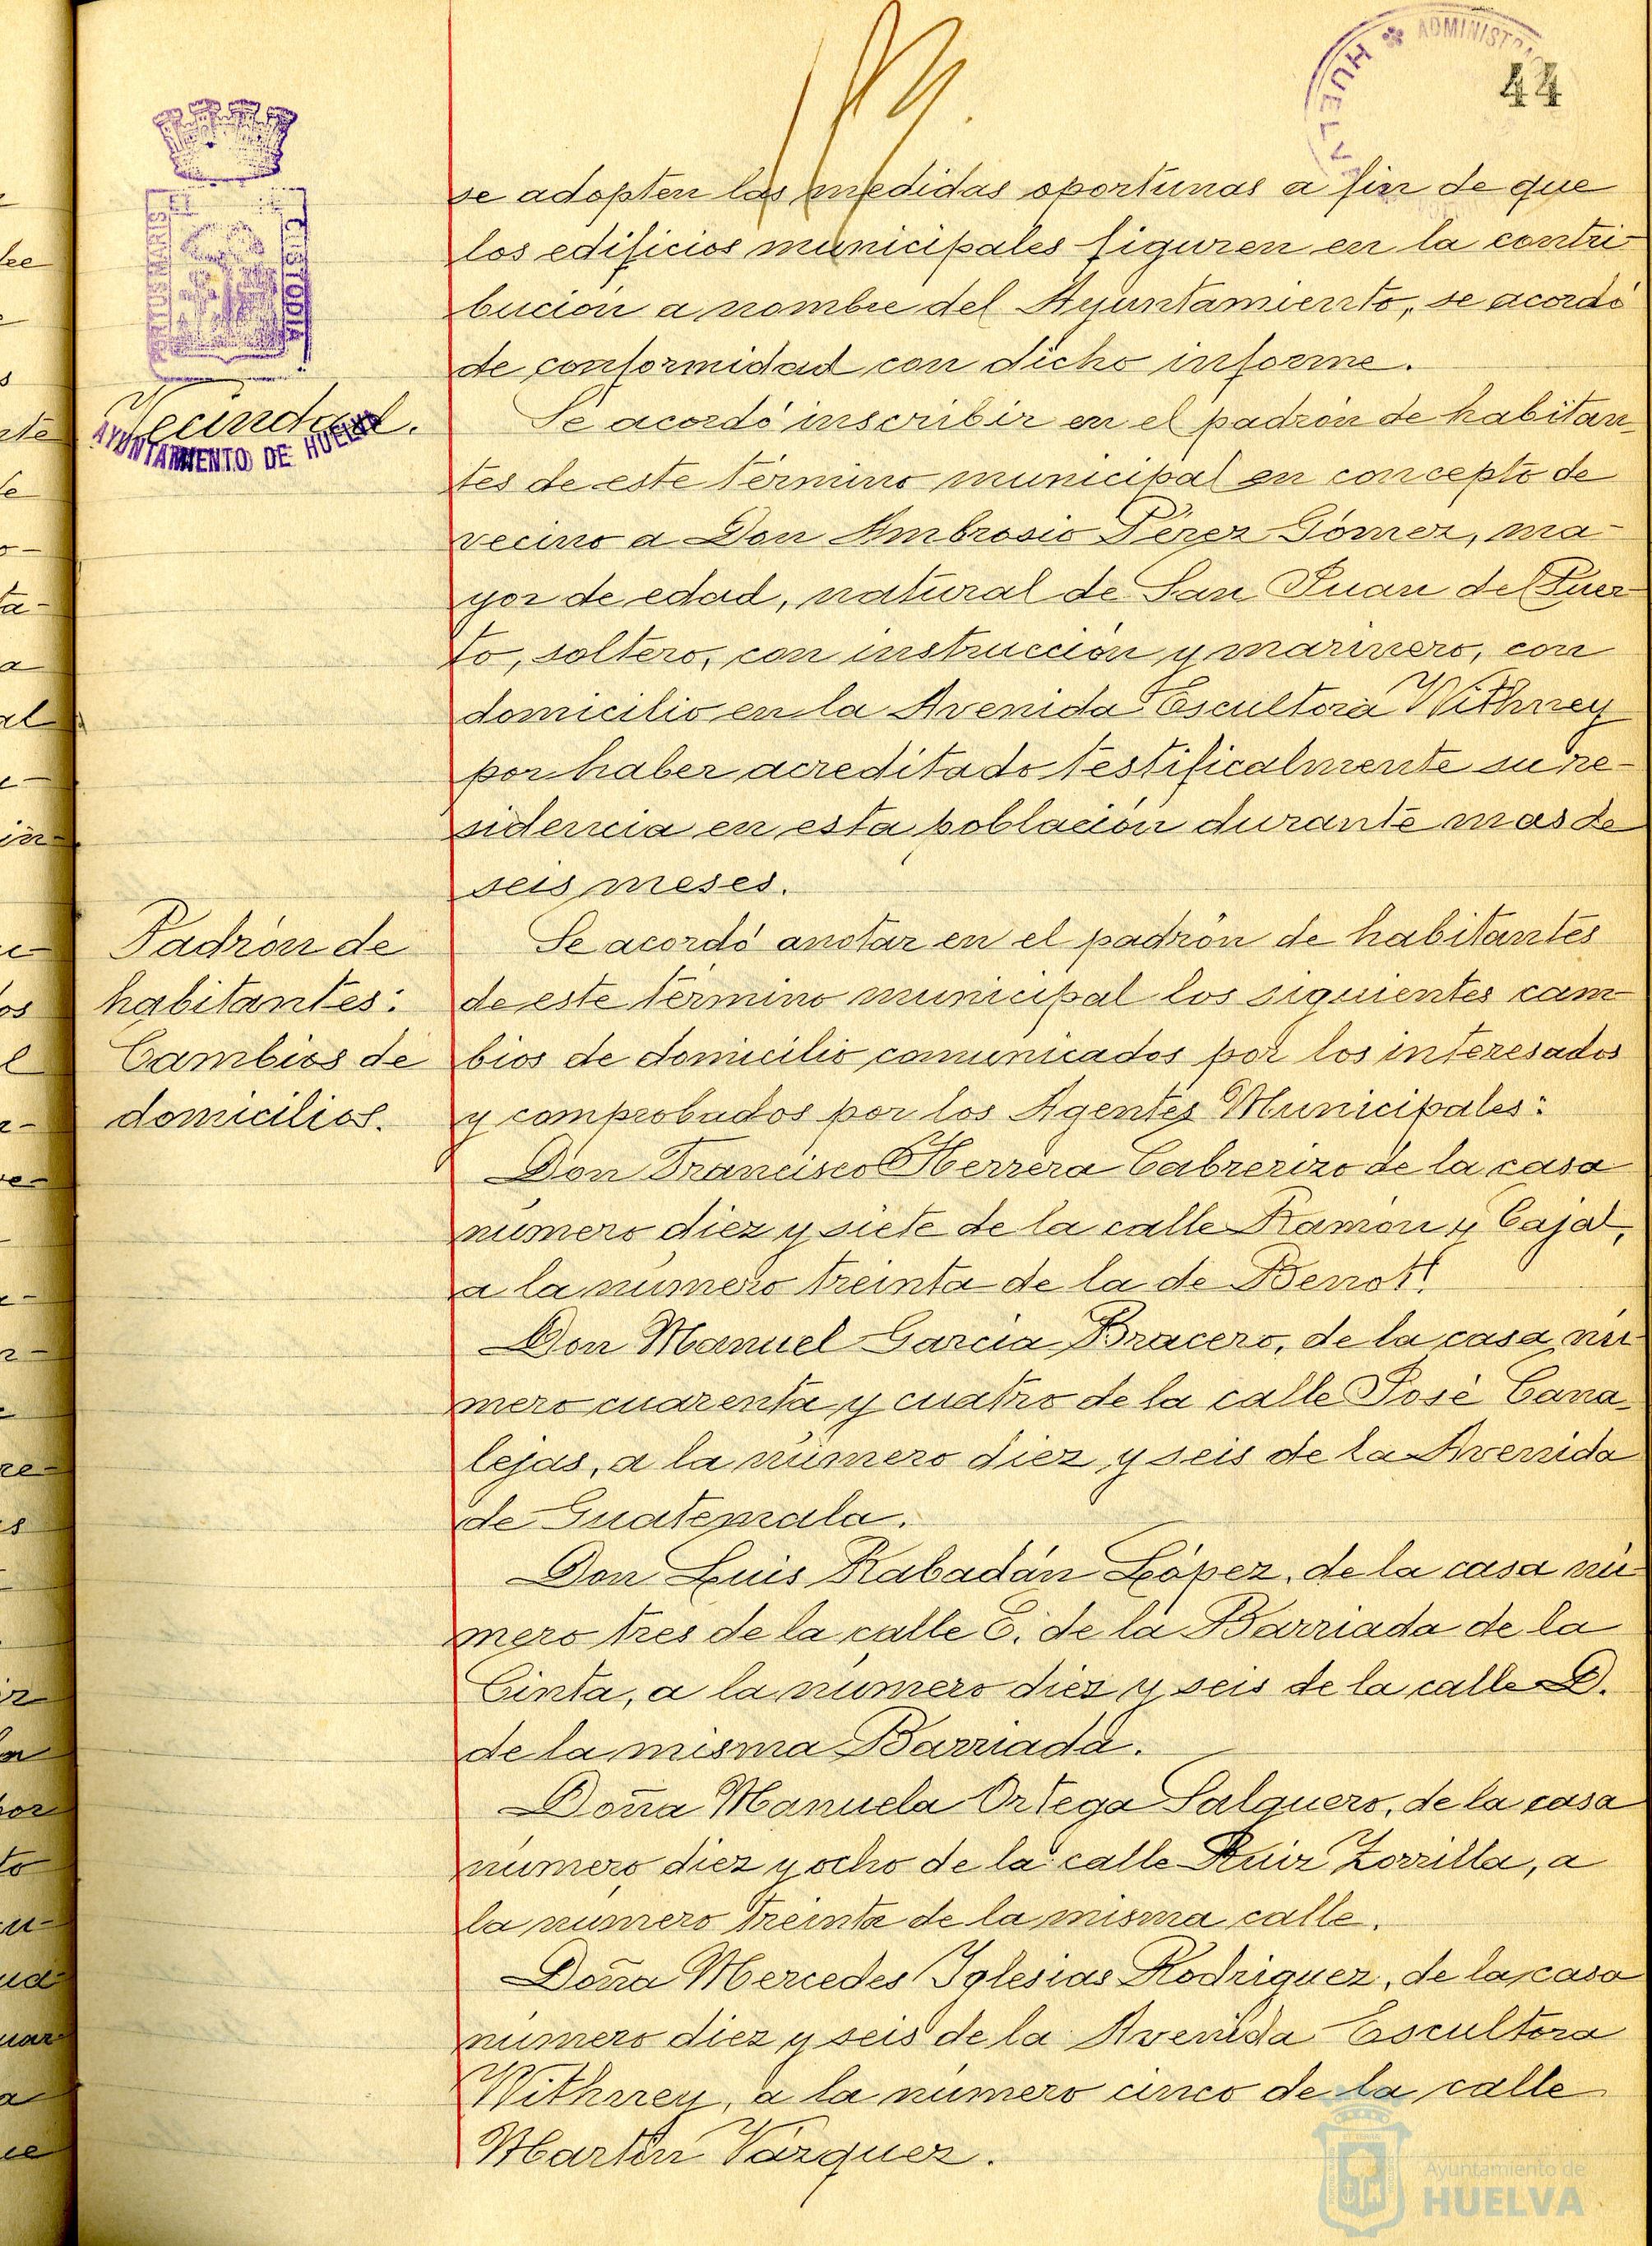 ADMINIST
HUELVA
44
se adopten las medidas oportunas a fin de que
los edificios municipales figuren en la contri-
bución a nombre del Ayuntamiento, se acordó
de conformidad con dicho informe.
PORTUS MARIS ET CUSTODIA
Vecindad.
AYUNTAMIENTO DE HUELVA
Se acordó inscribir en el padrón de habitan-
tes de este término municipal en concepto de
vecino a Don Ambrosio Pérez Gómez, ma-
yor de edad, natural de San Juan del Puer-
to, soltero, con instrucción y marinero, con
domicilio en la Avenida Escultora Withney
por haber acreditado testificalmente su re-
sidencia en esta población durante mas de
seis meses.
Padrón de
habitantes:
Cambios de
domicilios.
Se acordó anotar en el padrón de habitantes
de este término municipal los siguientes cam-
bios de domicilio comunicados por los interesados
y comprobados por los Agentes Municipales:
Don Francisco Herrera Cabrerizo de la casa
número diez y siete de la calle Ramón y Cajal,
a la número treinta de la de Benot.
Don Manuel García Bracero, de la casa nú-
mero cuarenta y cuatro de la calle José Cana-
lejas, a la número diez y seis de la Avenida
de Guatemala.
Don Luis Rabadán López, de la casa nú-
mero tres de la calle C. de la Barriada de la
Cinta, a la número diez y seis de la calle D.
de la misma Barriada.
Doña Manuela Ortega Salguero, de la casa
número diez y ocho de la calle Ruiz Zorrilla, a
la número treinta de la misma calle.
Doña Mercedes Iglesias Rodriguez, de la casa
número diez y seis de la Avenida Escultora
Withney, a la número cinco de la calle
Martín Vázquez.
Ayuntamiento de
HUELVA